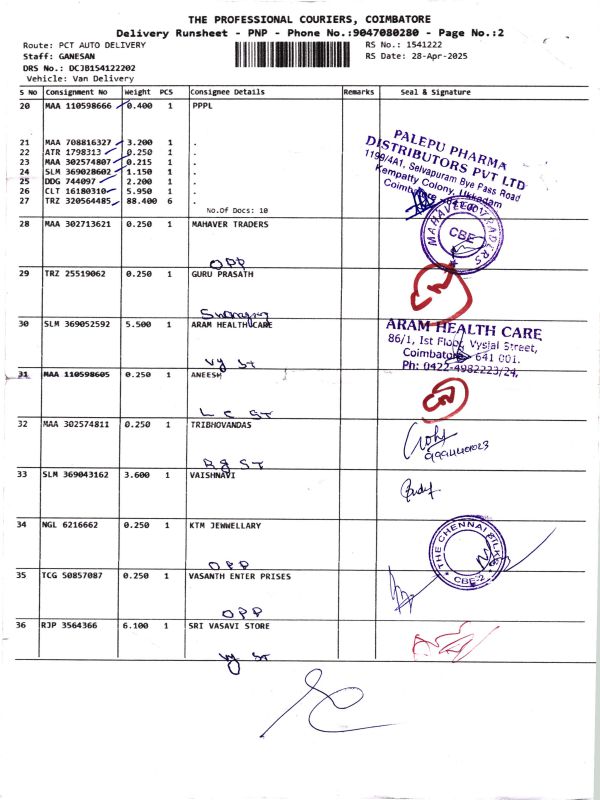 THE PROFESSIONAL COURIERS, COIMBATORE
Delivery Runsheet - PNP - Phone No.:9047080280 - Page No.:2
Route: PCT AUTO DELIVERY RS No.: 1541222
Staff: GANESAN RS Date: 28-Apr-2025
DRS No.: DCJB154122202
Vehicle: Van Delivery
S No Consignment No Weight PCS Consignee Details Remarks Seal & Signature
20 MAA 110598666 0.400 1 PPPL
21 MAA 708816327 3.200 1 .
22 ATR 1798313 0.250 1 .
23 MAA 302574807 0.215 1 .
24 SLM 369028602 1.150 1 .
25 DDG 744097 2.200 1 .
26 CLT 16180310 5.950 1 .
27 TRZ 320564485 88.400 6 .
No.Of Docs: 10
PALEPU PHARMA
DISTRIBUTORS PVT LTD
1199/4A1, Selvapuram Bye Pass Road
Kempatty Colony, Ukkadam
Coimbatore
28 MAA 302713621 0.250 1 MAHAVER TRADERS
OPP
MAHAVEER TRADERS
CBE
29 TRZ 25519062 0.250 1 GURU PRASATH
30 SLM 369052592 5.500 1 ARAM HEALTHCARE
Vy St
ARAM HEALTH CARE
86/1, Ist Floor, Vysial Street,
Coimbatore - 641 001.
Ph: 0422-4982223/24,
31 MAA 110598605 0.250 1 ANEESH
L C St
32 MAA 302574811 0.250 1 TRIBHOVANDAS
Rg St
33 SLM 369043162 3.600 1 VAISHNAVI
34 NGL 6216662 0.250 1 KTM JEWWELLARY
OPP
THE CHENNAI SILKS
CBE-2
35 TCG 50857087 0.250 1 VASANTH ENTER PRISES
OPP
36 RJP 3564366 6.100 1 SRI VASAVI STORE
Vy St